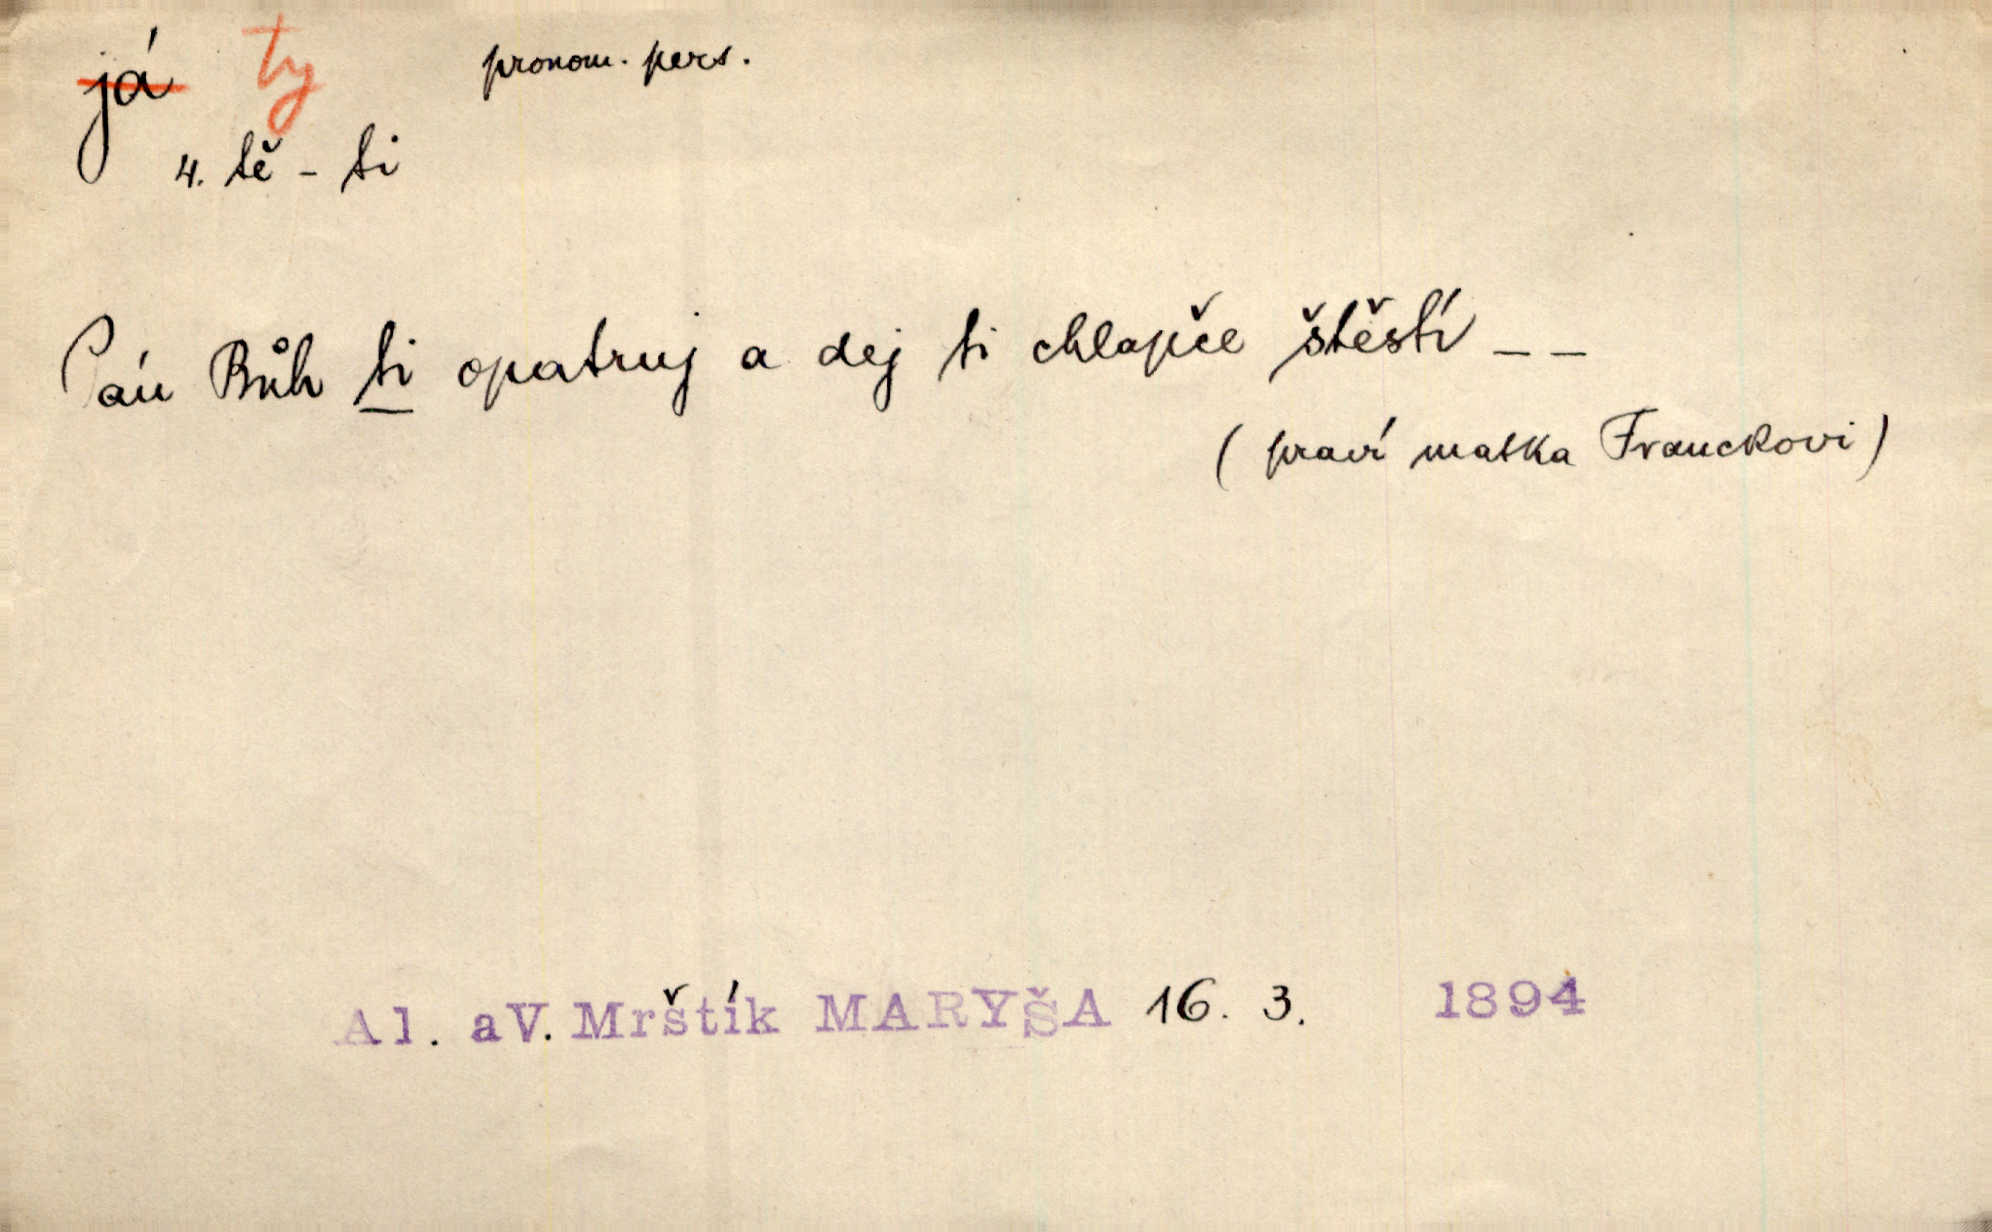 já ty pronom. pers.
4. tě - ti
Pán Bůh ti opatruj a dej ti chlapče štěstí _ _
(praví matka Franckovi)
Al. a V. Mrštík MARYŠA 16. 3. 1894